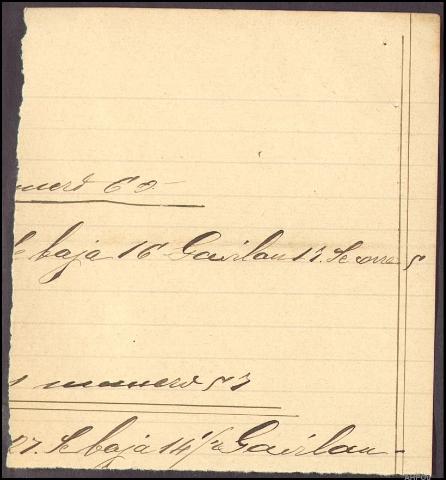 numero 60
Se baja 16 Gavilan 17. Se corre 5
numero 57
27. Se baja 14 1/2 Gavilan-